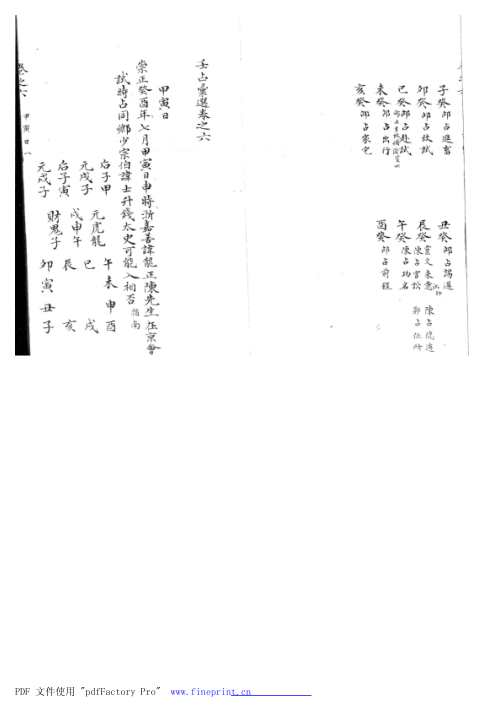 子癸 邱占進畜
卯癸 邱占歲試
巳癸 邱占赴試
未癸 邱占出行
亥癸 邱占家宅
丑癸 邱占謁選
辰癸 陳占官訟
陳占
午癸 陳占功名
酉癸 邱占前程
壬占彙選卷之六
甲寅日
崇正癸酉年七月甲寅日申時浙嘉善諱龍正陳先生在京會
試時占同鄉少宗伯諱士升錢太史可能入相否 指南
后子甲 元虎龍 午未申酉
元戌子 戌申午 巳 戌
后子寅 財鬼子 辰 亥
元戌子 卯寅丑子
卷之六
甲寅日 一
PDF 文件使用 "pdfFactory Pro" www.fineprint.cn